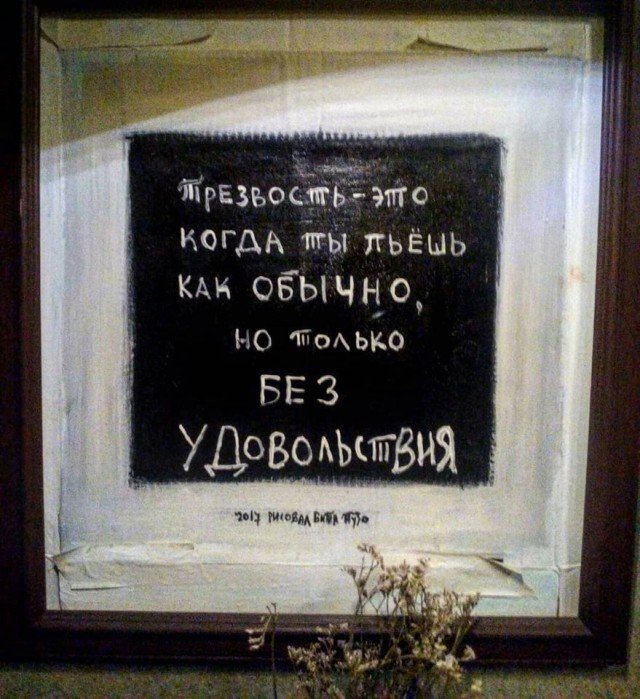 ТРЕЗВОСТЬ - ЭТО
КОГДА ТЫ ПЬЁШЬ
КАК ОБЫЧНО,
НО ТОЛЬКО
БЕЗ
УДОВОЛЬСТВИЯ
2017 РИСОВАЛ